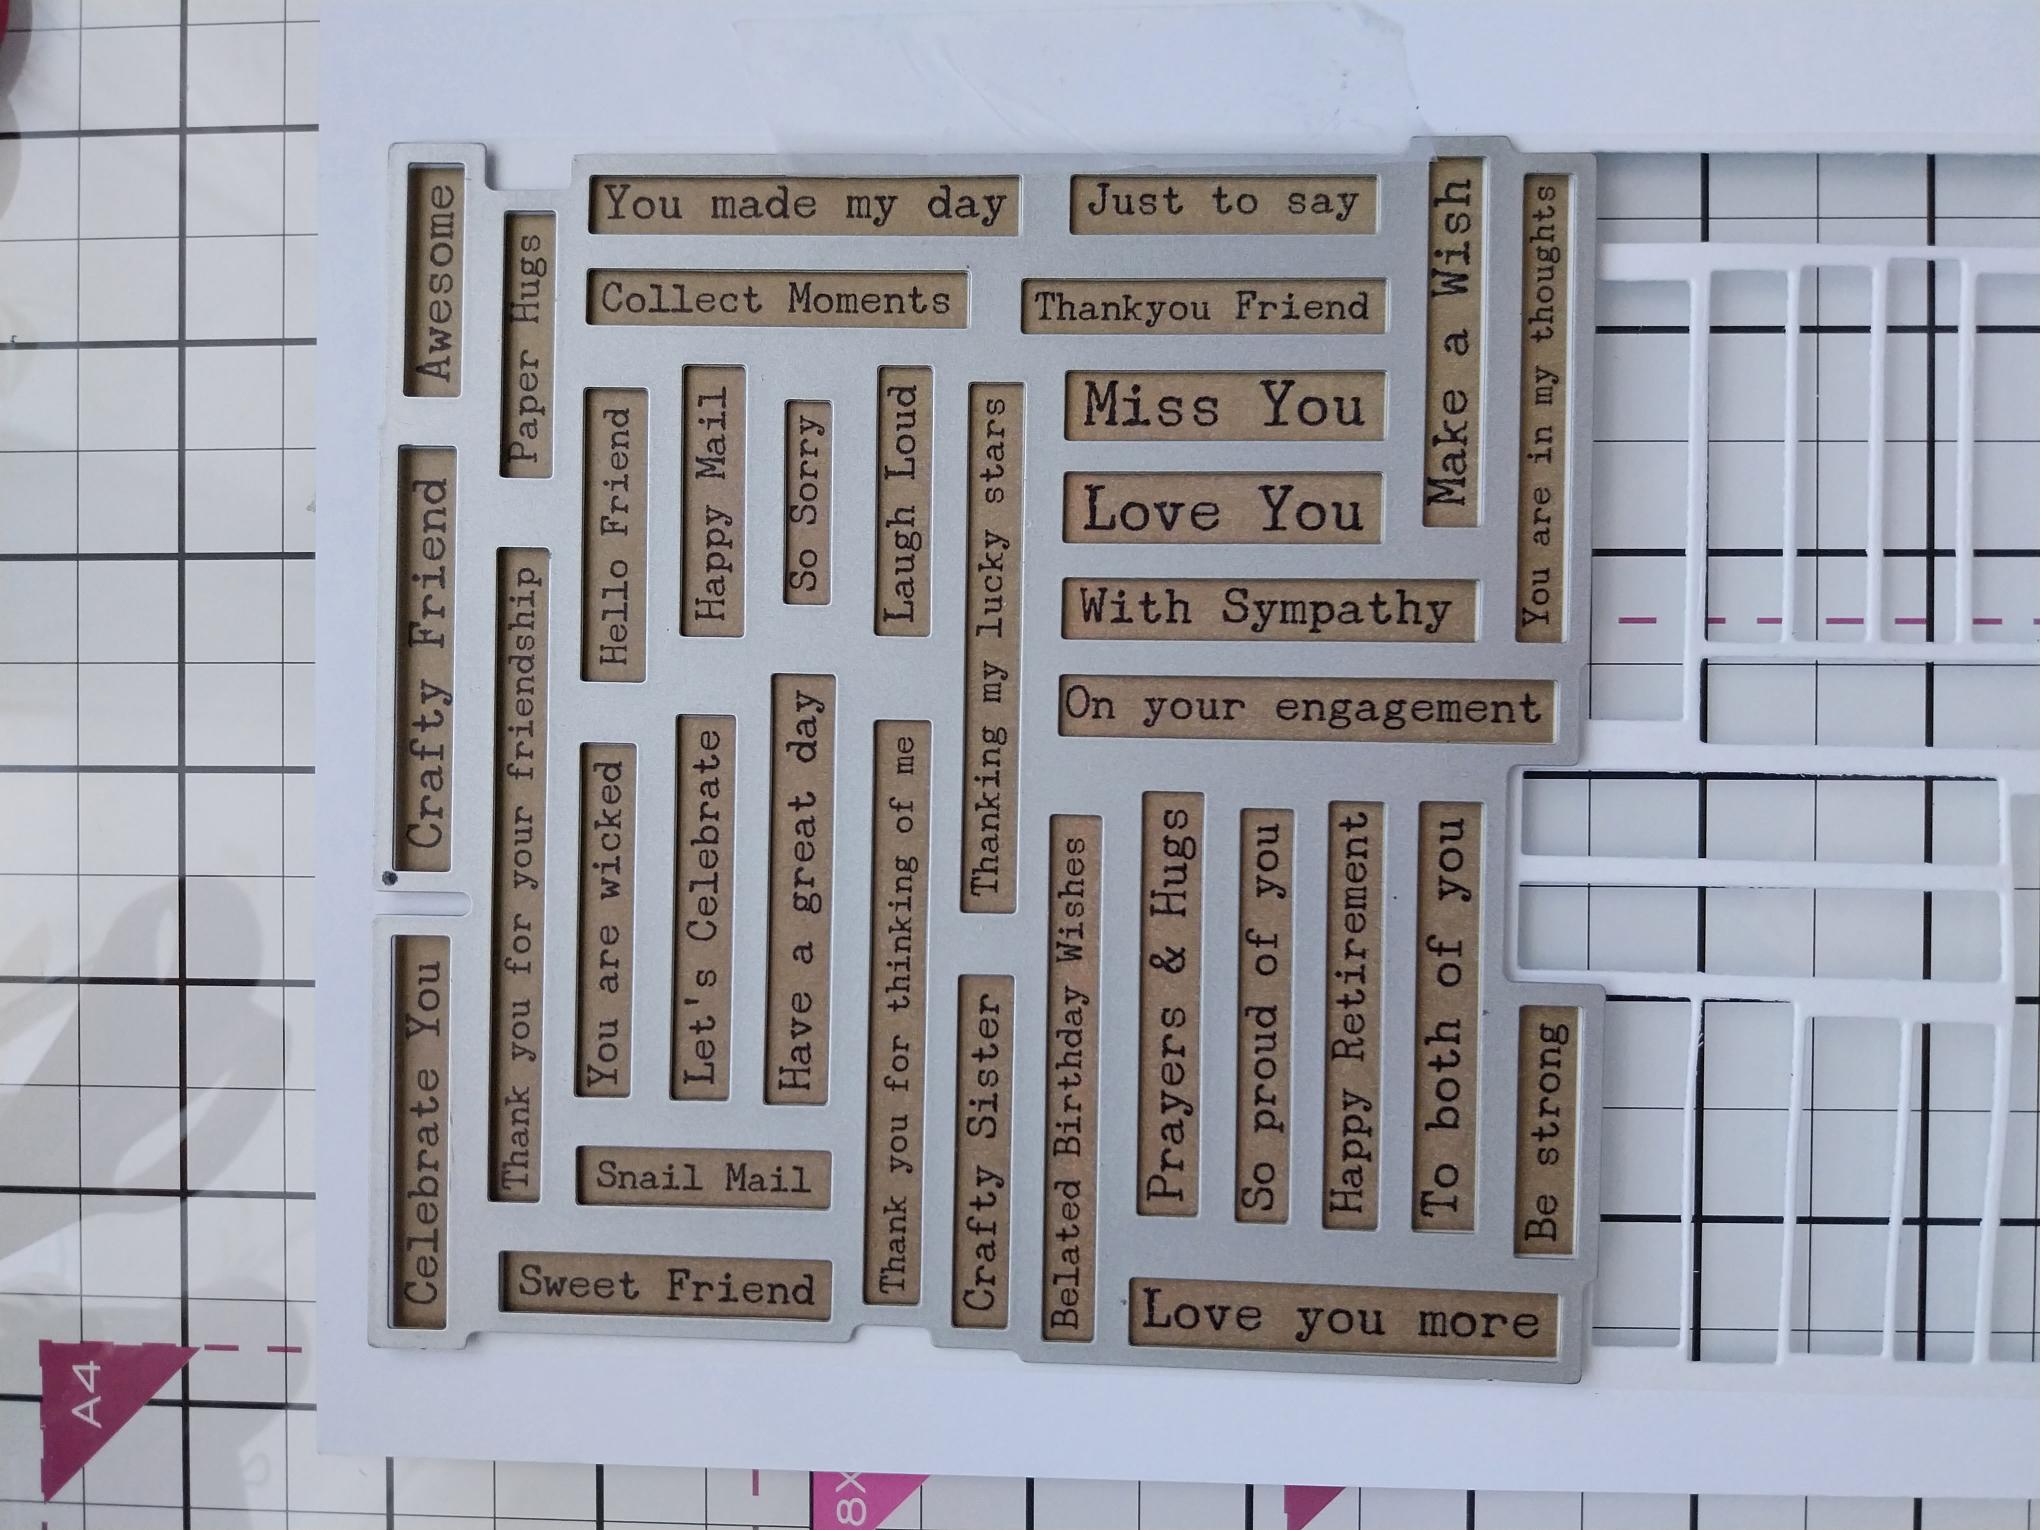 Awesome
Crafty Friend
Celebrate You
Paper Hugs
Thank you for your friendship
You made my day
Just to say
Collect Moments
Thankyou Friend
Make a Wish
You are in my thoughts
Hello Friend
Happy Mail
So Sorry
Laugh Loud
Thanking my lucky stars
Miss You
Love You
With Sympathy
On your engagement
You are wicked
Let's Celebrate
Have a great day
Thank you for thinking of me
Snail Mail
Sweet Friend
Crafty Sister
Belated Birthday Wishes
Prayers & Hugs
So proud of you
Happy Retirement
To both of you
Be strong
Love you more
A4
8X